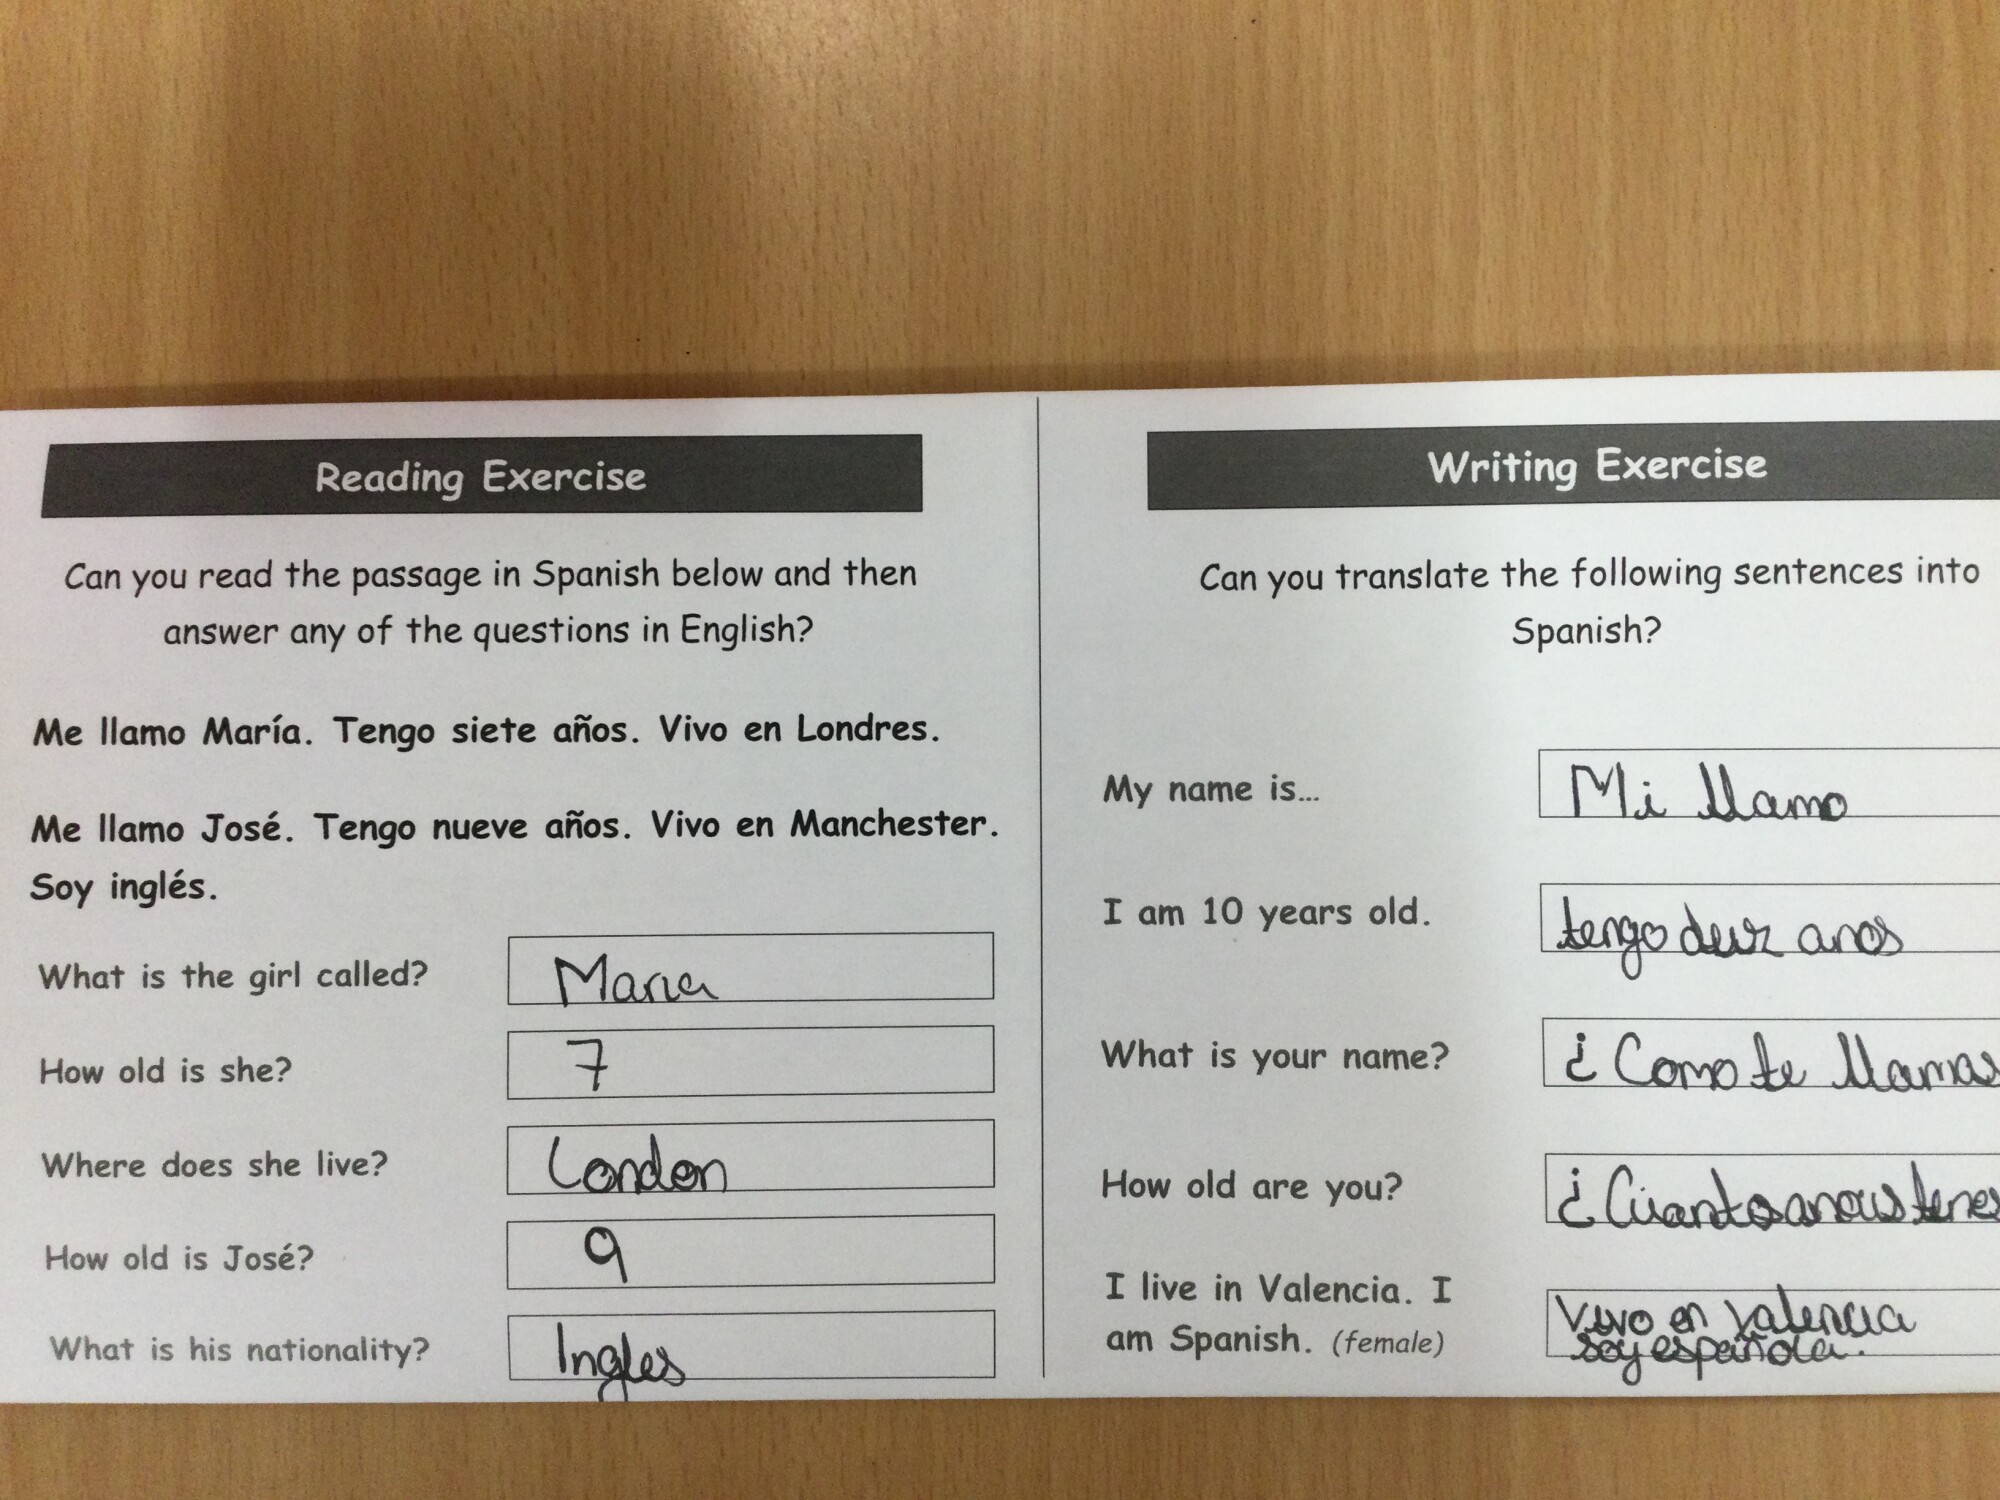 Reading Exercise
Can you read the passage in Spanish below and then
answer any of the questions in English?
Me llamo María. Tengo siete años. Vivo en Londres.
Me llamo José. Tengo nueve años. Vivo en Manchester.
Soy inglés.
What is the girl called? Maria
How old is she? 7
Where does she live? London
How old is José? 9
What is his nationality? Ingles
Writing Exercise
Can you translate the following sentences into
Spanish?
My name is... Mi llamo
I am 10 years old. tengo anos
What is your name? ¿Como te llamas
How old are you? ¿Cuantos tenes
I live in Valencia. I
am Spanish. (female)
Vivo en Valencia
soy española.